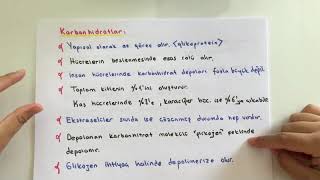 Karbonhidratlar:
Yapısal olarak az görev alır. (glikoprotein)
Hücrelerin beslenmesinde esas rolü alır.
İnsan hücrelerinde karbonhidrat depoları fazla büyük değil
Toplam kitlenin %1'ini oluşturur.
Kas hücrelerinde %3'e, karaciğer hcc. ise %6'ya çıkabilir
Ekstraselüler sıvıda ise çözünmüş durumda hep vardır.
Depolanan karbonhidrat molekülü "glikojen" şeklinde
depolanır.
Glikojen ihtiyaç halinde depolimerize olur.